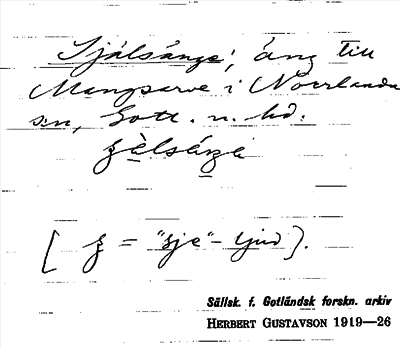 Själsänge', äng till
Mangsarve i Norrlanda
s:n, Gotl. n. hd.
ʒèlsänge
[ ʒ = "sje"- ljud ].
Sällsk. f. Gotländsk forskn. arkiv
HERBERT GUSTAVSON 1919—26